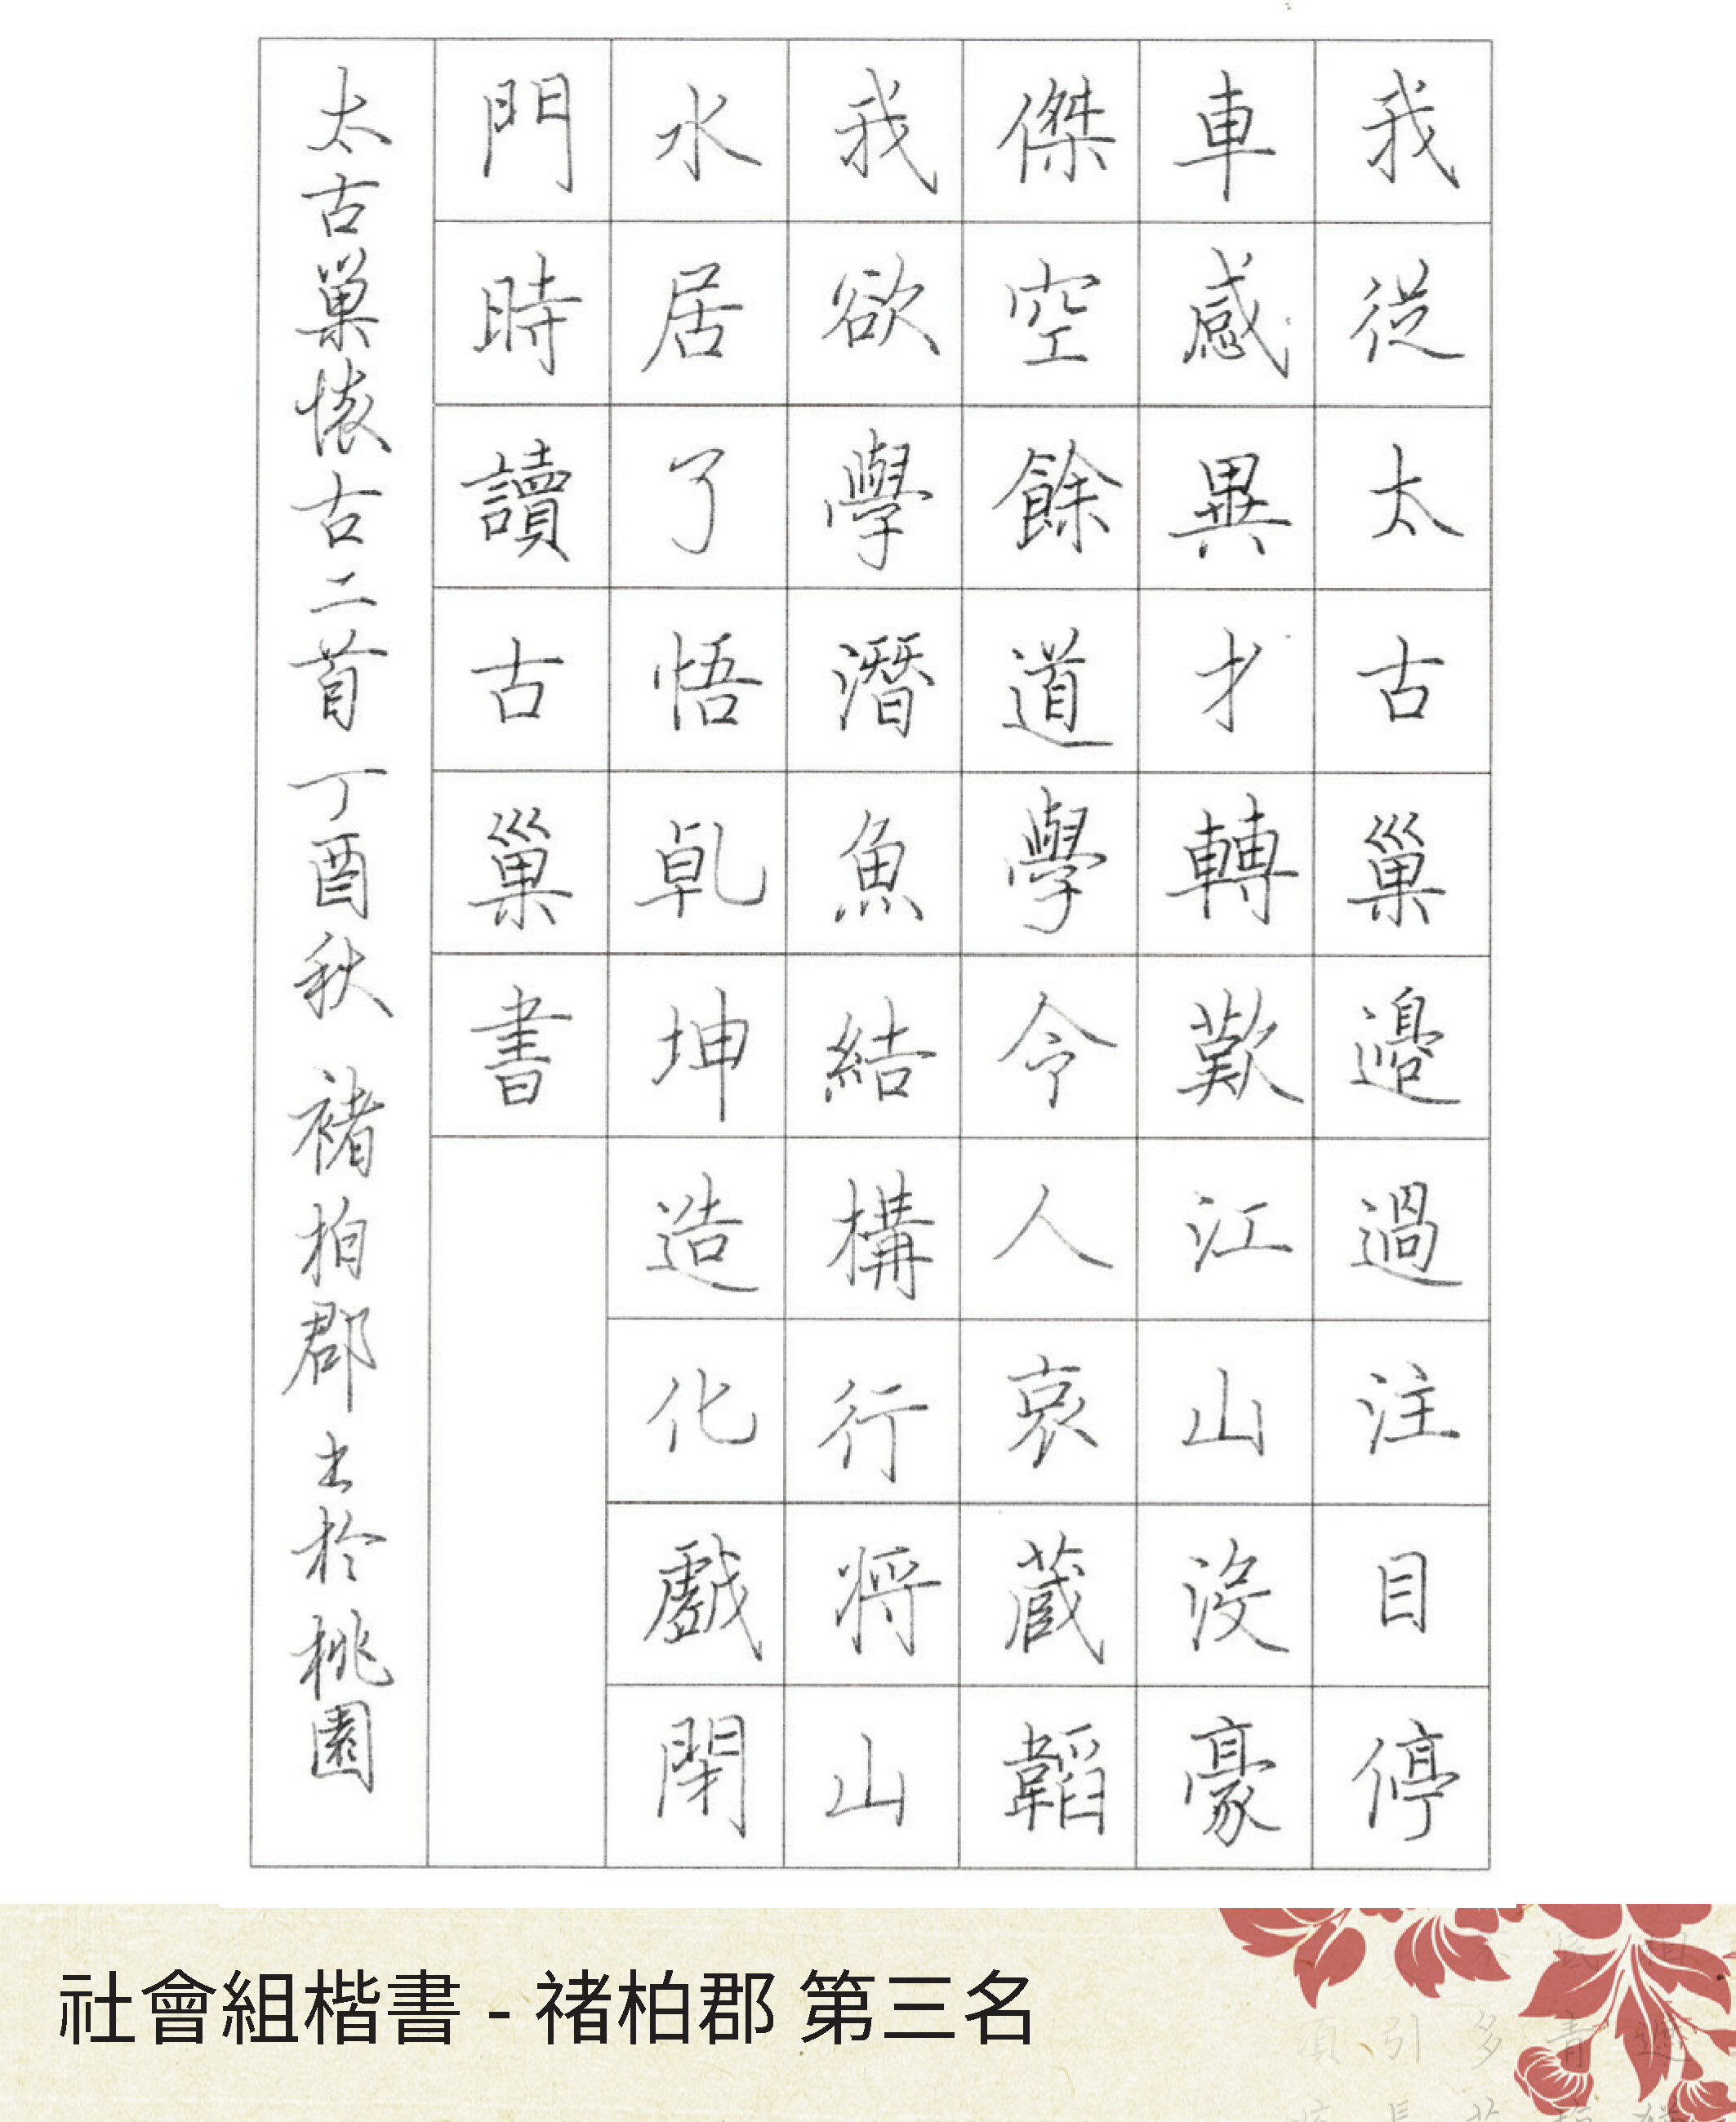 我從太古巢邊過注目停
車感異才轉歎江山沒豪
傑空餘道學令人哀藏韜
我欲學潛魚結構行將山
水居了悟乾坤造化戲閉
門時讀古巢書
太古巢懷古二首 丁酉秋 褚柏郡書於桃園
社會組楷書 - 褚柏郡 第三名